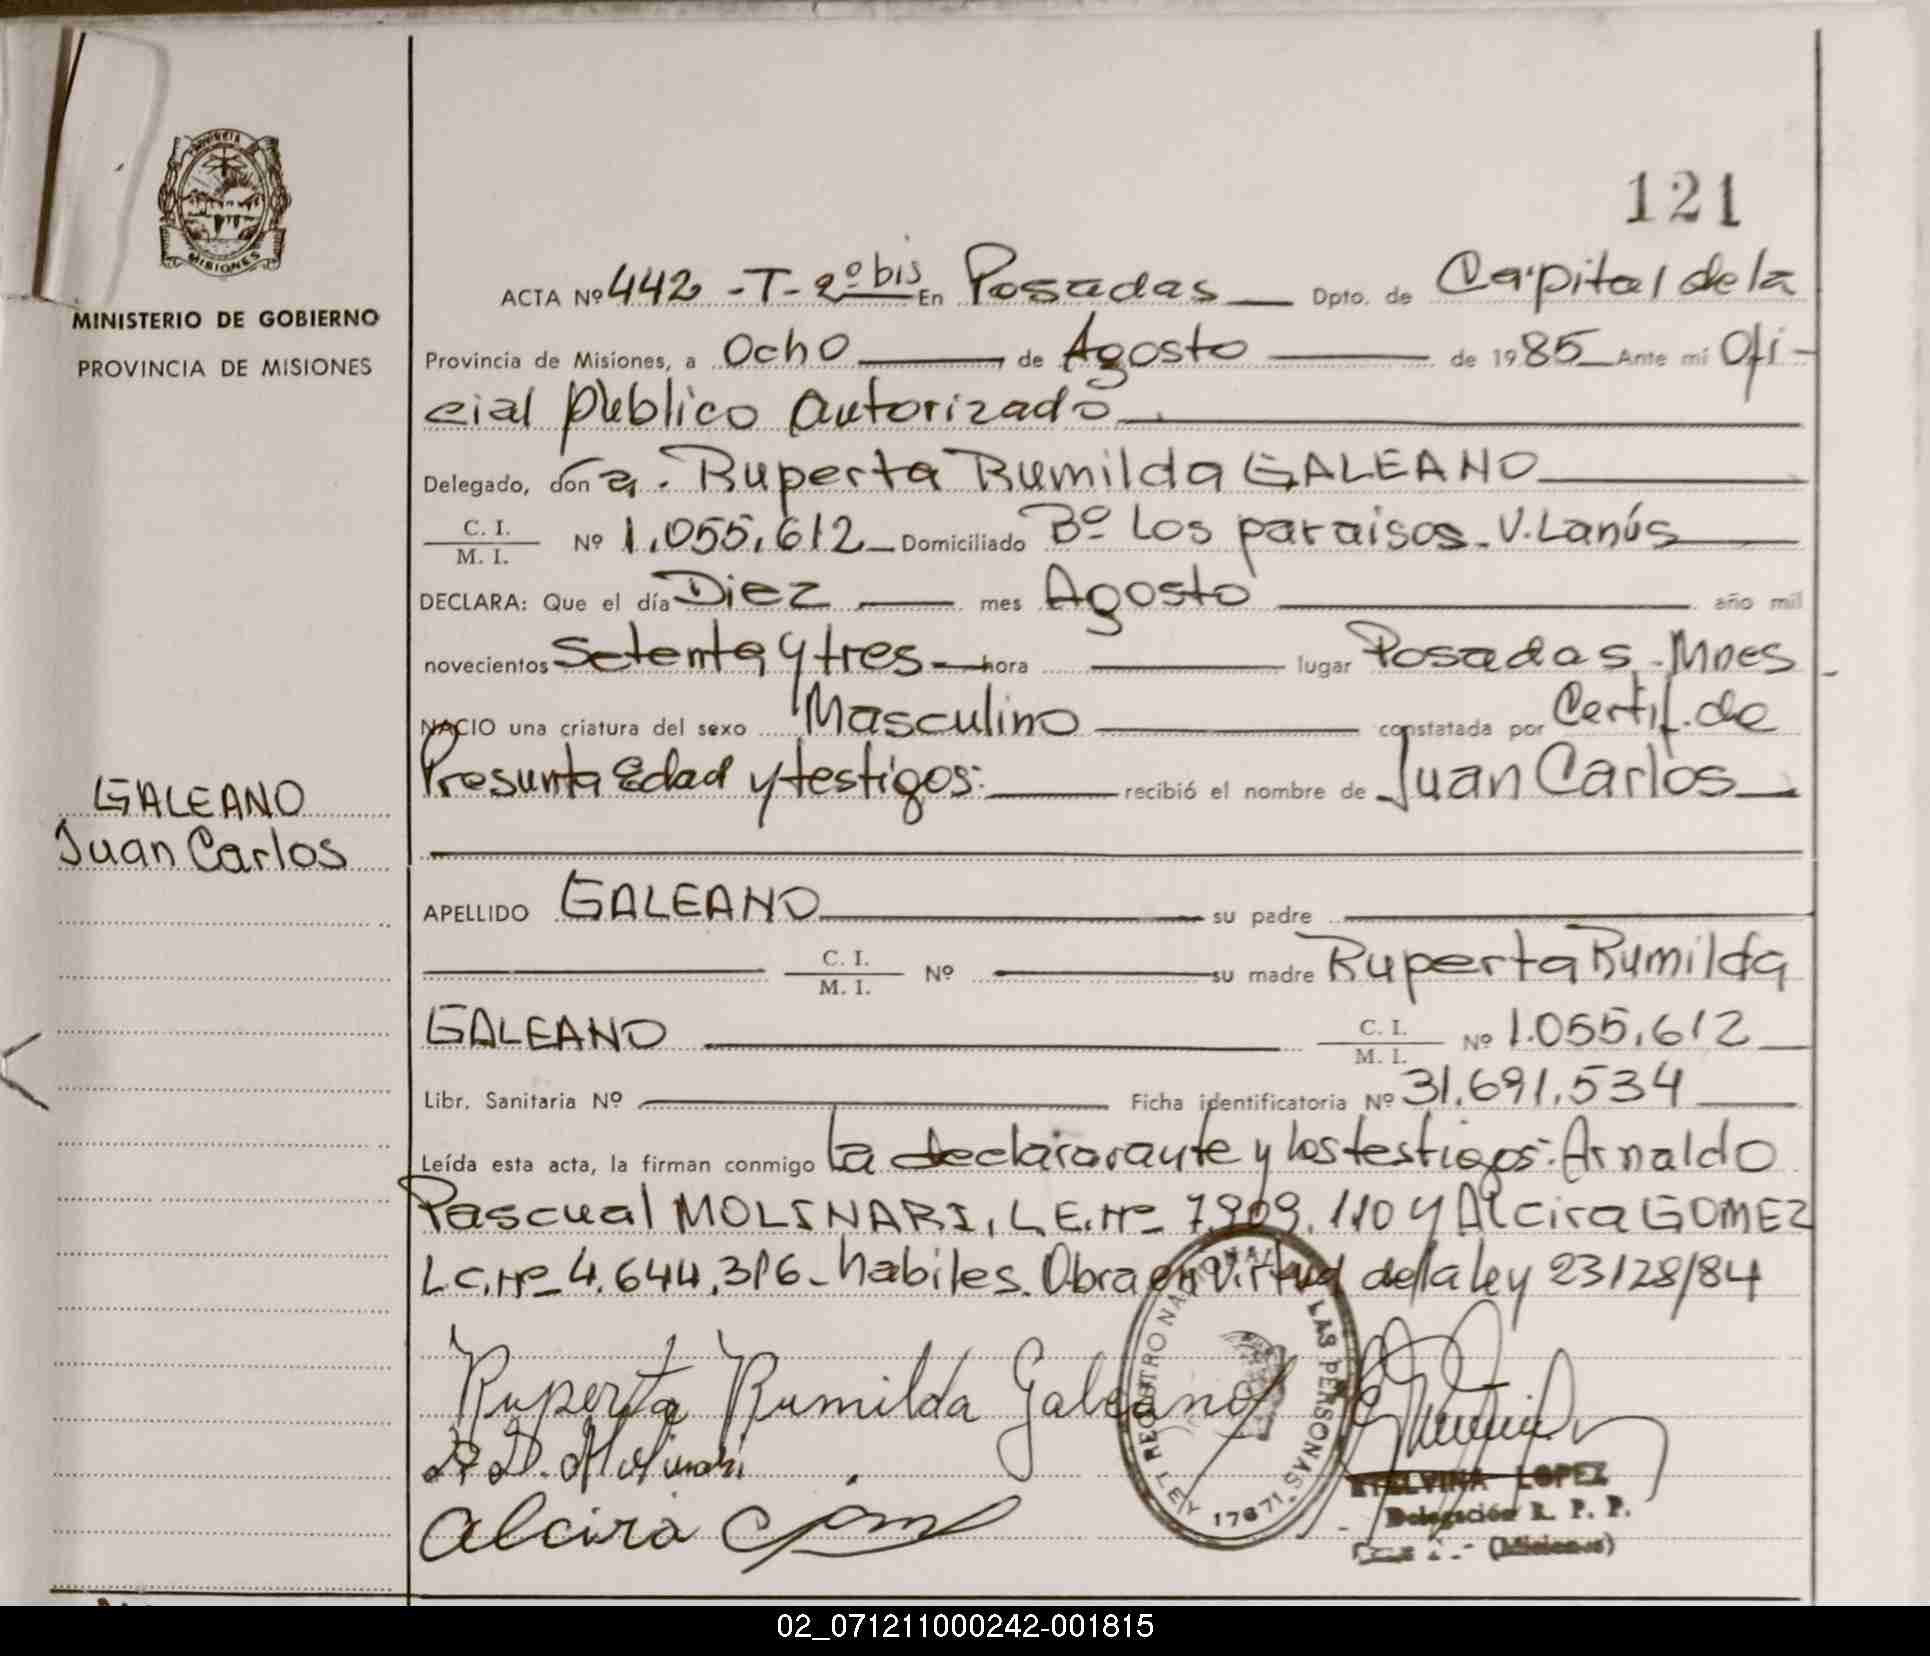 121
PROVINCIA
MISIONES
MINISTERIO DE GOBIERNO
PROVINCIA DE MISIONES
ACTA Nº 442 - T - 2º bis En Posadas Dpto. de Capital de la
Provincia de Misiones, a Ocho de Agosto de 1985 Ante mí Ofi-
cial público Autorizado
Delegado, don a. Ruperta Rumilda GALEANO
C. I.
M. I. Nº 1.055.612 Domiciliado Bº Los paraisos. V. Lanús
DECLARA: Que el día Diez mes Agosto año mil
novecientos Setenta y tres hora lugar Posadas - Mnes
NACIO una criatura del sexo Masculino constatada por Certif. de
Presunta Edad y testigos: recibió el nombre de Juan Carlos
GALEANO
Juan Carlos
APELLIDO GALEANO su padre
C. I.
M. I. Nº su madre Ruperta Rumilda
GALEANO C. I.
M. I. Nº 1.055.612
Libr. Sanitaria Nº Ficha identificatoria Nº 31.691.534
Leída esta acta, la firman conmigo La declararante y los testigos: Arnaldo
Pascual MOLINARI, L.E. Nº 7.909.110 y Alcira GOMEZ
L.C. Nº 4.644.316 - habiles. Obra en virtud de la ley 23128/84
Ruperta Rumilda Galeano
Molinari
Alcira
REGISTRO NACIONAL LAS PERSONAS
LEY 17671
ETELVINA LOPEZ
Delegación R. P. P.
(Misiones)
02_071211000242-001815